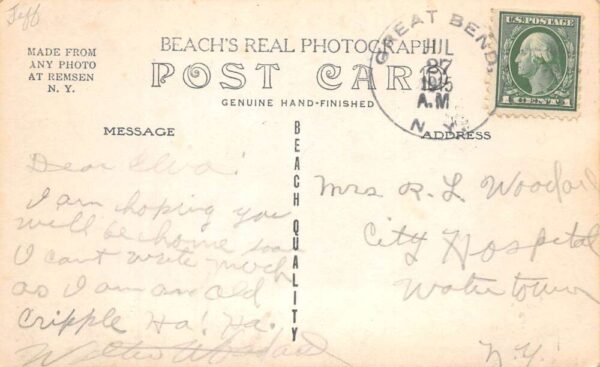 Jeff
MADE FROM
ANY PHOTO
AT REMSEN
N. Y.
BEACH'S REAL PHOTOGRAPHIC
POST CARD
GENUINE HAND-FINISHED
GREAT BEND,
27
1915
A.M
N. Y.
U.S. POSTAGE
1 CENT 1
MESSAGE
ADDRESS
BEACH QUALITY
Dear Elva:
I am hoping you
will be home soon
I cant write much
as I am an old
Cripple Ha! Ha.
Mrs R. L. Woodard
City Hospital
Watertown
N.Y.